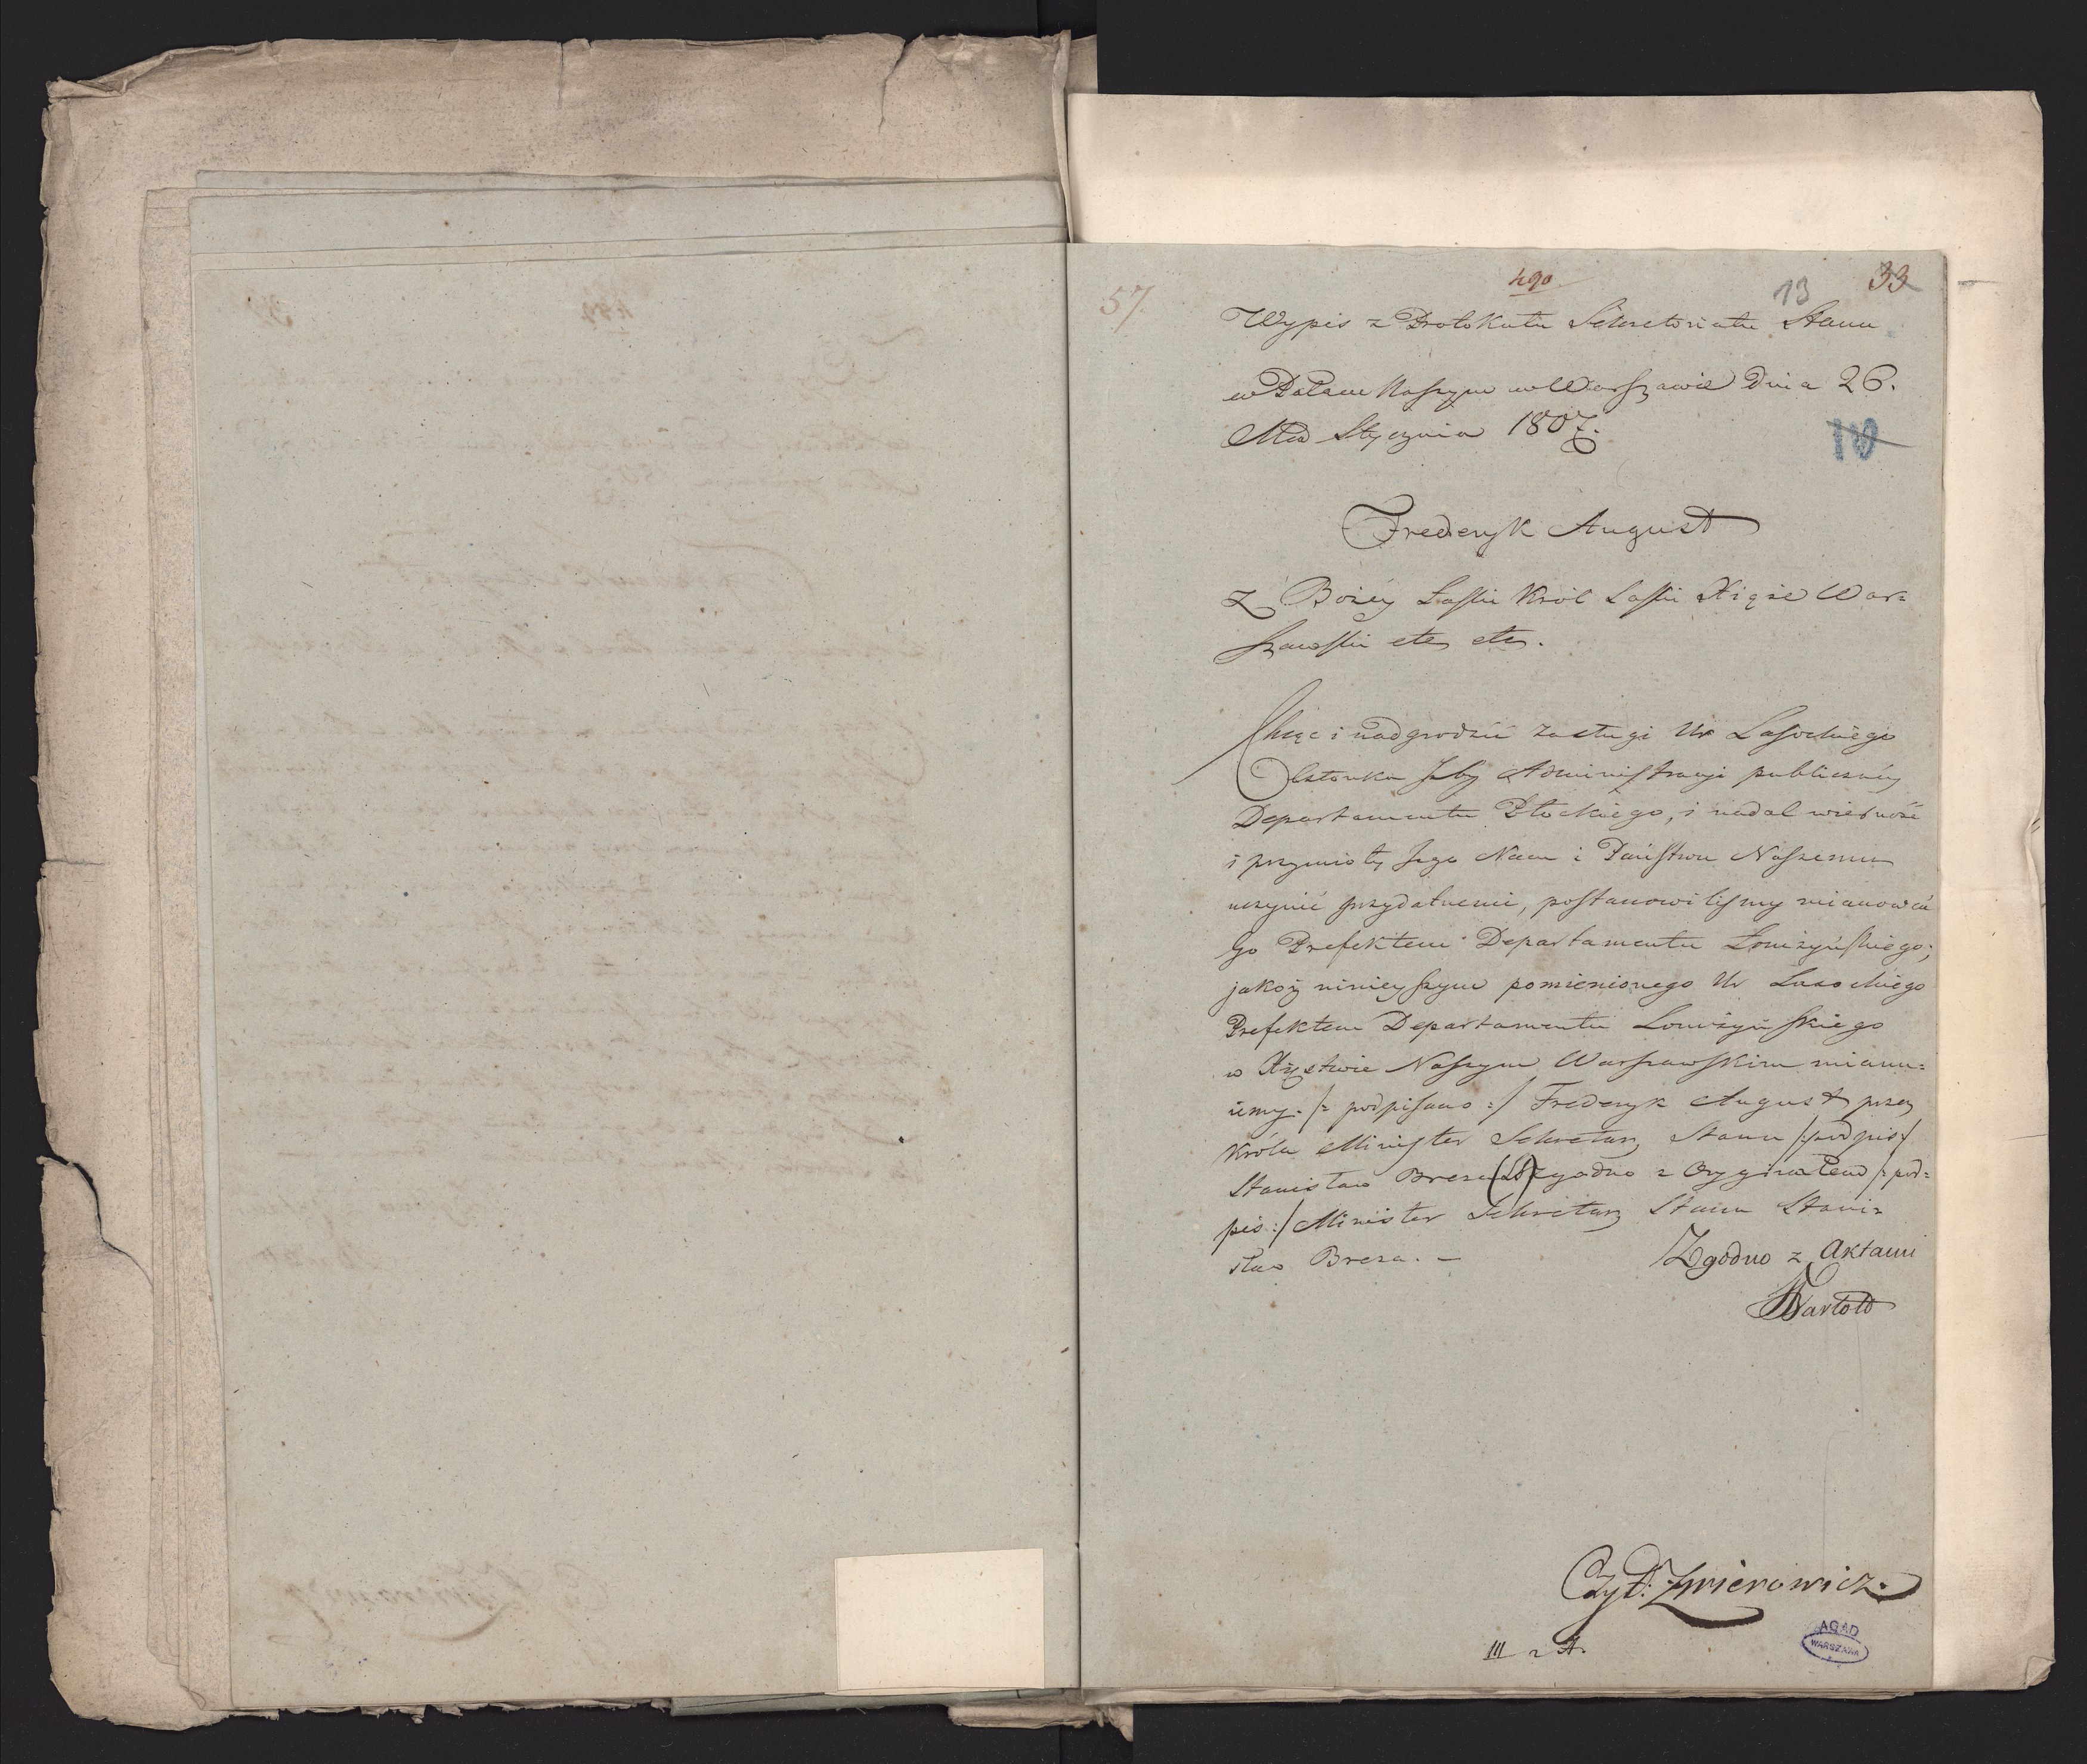 57.
490
13
33
Wypis z Protokułu Sekretariatu Stanu
w Pałacu Naszym w Warszawie Dnia 26.
Mca Stycznia 1807.
10
Frederyk August
z Bożey Łaski Król Saski Xiąże War=
szawski etc etc.
Chcąc i nadgrodzić zasługi Ur Lasockiego
Członka Izby Administracyi publiczney
Departamentu Płockiego, i nadal wierność
i przymioty Jego Nam i Państwu Naszemu
uczynić przydatnemi, postanowiliśmy mianować
Go Prefektem Departamentu Łomżyńskiego;
jakoż ninieyszym pomienionego Ur Lasockiego
Prefektem Departamentu Łomżyńskiego
w Xięstwie Naszym Warszawskim mianu=
iemy. /: podpisano :/ Frederyk August przez
Króla Minister Sekretarz Stanu /: podpis :/
Stanisław Breza (LS) zgodno z Oryginałem /: pod=
pis :/ Minister Sekretarz Stanu Stani=
sław Breza. –
Zgodno z Aktami
Czyt: Zmierowicz.
III A.
AGAD
WARSZAWA